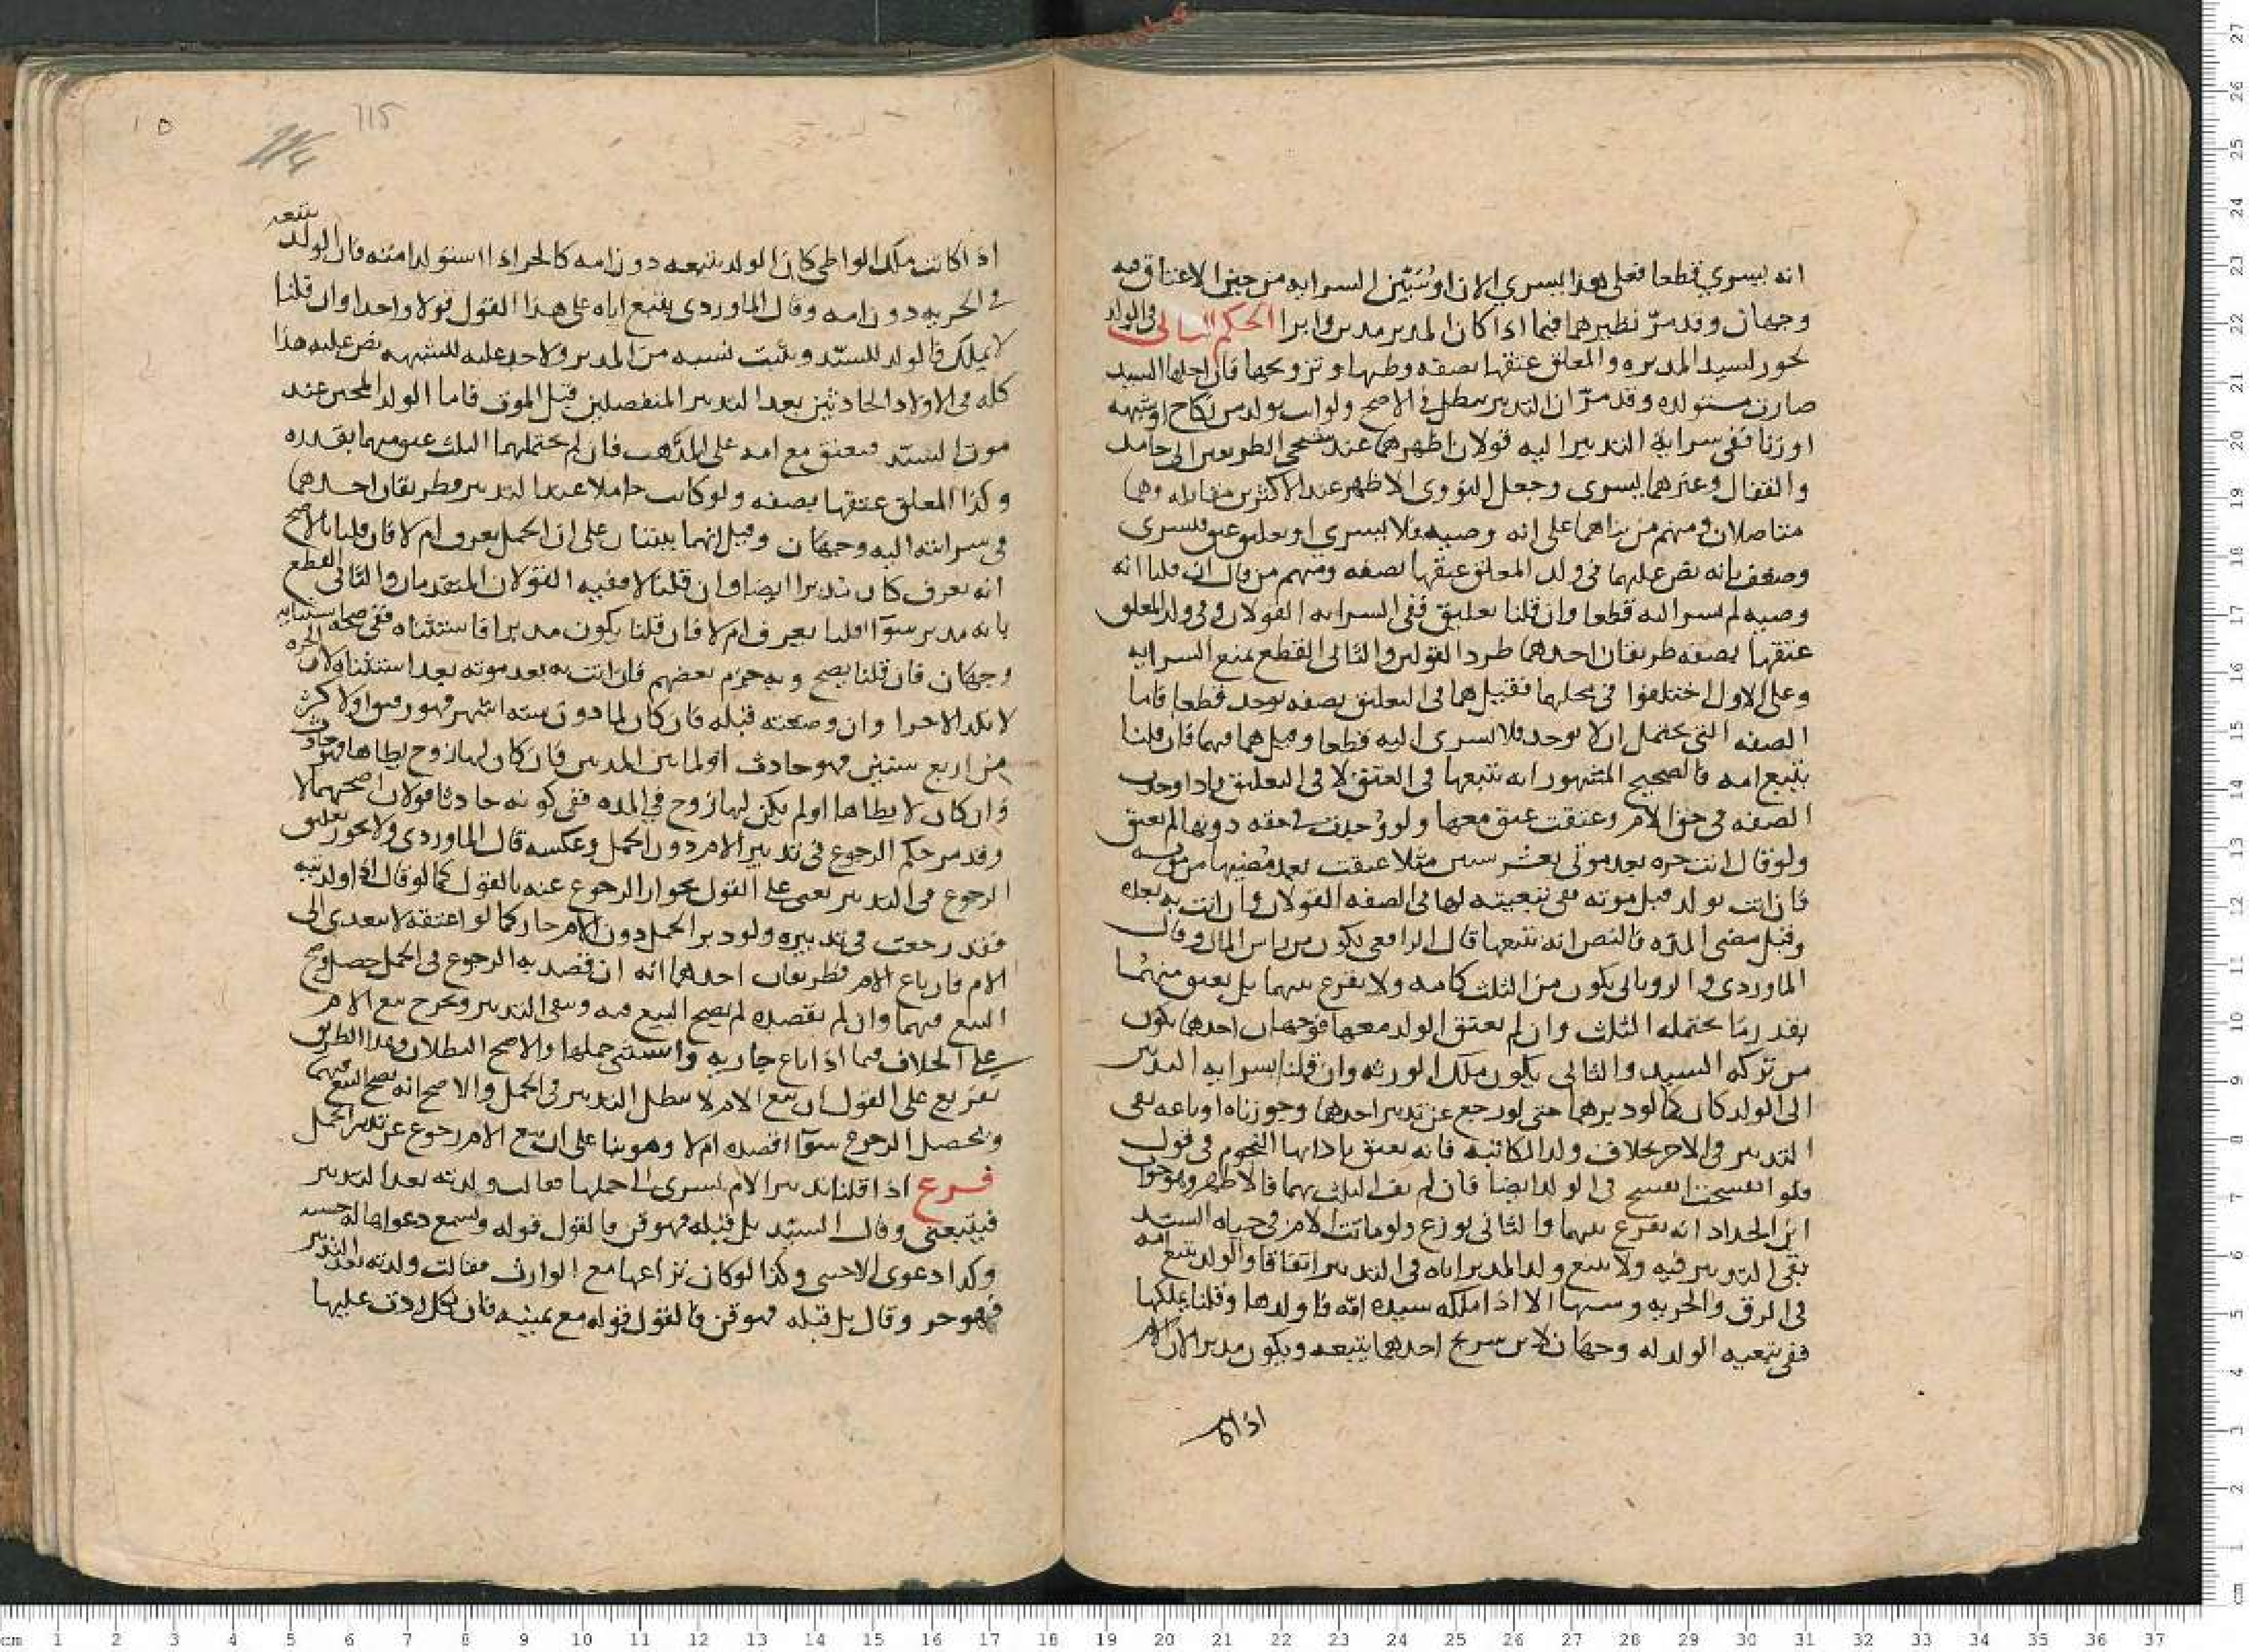 انه يسري قطعا فعلى هذا يسري الان او نتبين السرايه من حين الاعتاق فيه
وجهان وقد مر نظيرهما فيما اذا كان المدبر مدبر وابرا الحكم الثاني في الولد
يجوز لسيد المدبره والمعلق عتقها بصفه وطيها وتزويجها فان احبلها السيد
صارت مستولده وقد مر ان التدبير يبطل في الاصح ولو اتت بولد من نكاح او شبهه
او زنا ففي سراية التدبير اليه قولان اظهرهما عند الشيخ ابي حامد
والقفال وغيرهما يسري وجعل النووي الاظهر عند الاكثرين مقابله وهما
متاصلان ومنهم من بناهما على انه وصيه فلا يسري او تعليق عتق فيسري
وضعف بانه نص عليهما في ولد المعلق عتقها بصفه ومنهم من قال ان قلنا انه
وصيه لم يسر اليه قطعا وان قلنا تعليق ففي السرايه القولان وفي ولد المعلق
عتقها بصفه طريقان احدهما طرد القولين والثاني القطع بمنع السرايه
وعلى الاول اختلفوا في محلهما فقيل هما في التعليق بصفه توجد قطعا فاما
الصفه التي يحتمل ان لا توجد فلا يسري اليه قطعا وقيل هما فيهما فان قلنا
يتبع امه فالصحيح المشهور انه يتبعها في العتق لا في التعليق فاذا وجدت
الصفه في حق الام وعتقت عتق معها ولو وجدت في حقه دونها لم يعتق
ولو قال انت حره بعد موتي بعشر سنين مثلا عتقت بعد مضيها من موته
فان اتت بولد قبل موته ففي تبعيته لها في الصفه القولان وان اتت به بعده
وقبل مضي المده فالنص انه يتبعها قال الرافعي يكون من راس المال وقال
الماوردي والروياني يكون من الثلث كامه ولا يقرع بينهما بل يعتق منهما
بقدر ما يحتمله الثلث وان لم يعتق الولد معها فوجهان احدهما يكون
من تركه السيد والثاني يكون ملك الورثه وان قلنا بسرايه التدبير
الى الولد كان كما لو دبرهما حتى لو رجع عن تدبير احدهما وجوزناه او باعه بقي
التدبير في الاخر بخلاف ولد المكاتبه فانه يعتق بادائها النجوم في قول
فلو انفسخت انفسخ في الولد ايضا فان لم يف الثلث بهما فالاظهر وهو جواب
ابن الحداد انه يقرع بينهما والثاني يوزع ولو ماتت الام في حياه السيد
بقي التدبير فيه ولا يتبع ولد المدبر اباه في التدبير اتفاقا والولد يتبع امه
في الرق والحريه وسببها الا اذا ملكه سيده امه فاولدها وقلنا يملكها
ففي تبعيه الولد له وجهان لابن سريج احدهما يتبعه ويكون مدبرا لان الام
اذا كا
115
اذا كانت ملك الواطي كان الولد يتبعه دون امه كالحر اذا استولد امته فان الولد يتبعه
في الحريه دون امه وقال الماوردي يتبع اباه على هذا القول قولا واحدا وان قلنا
لا يملك فالولد للسيد ويثبت نسبه من المدبر ولا حد عليه للشبهه نص عليه هذا
كله في الاولاد الحادثين بعد التدبير المنفصلين قبل الموت فاما الولد المجتن عند
موت السيد فيعتق مع امه على المذهب فان لم يحتملهما الثلث عتق منهما بقدره
وكذا المعلق عتقها بصفه ولو كانت حاملا عند التدبير فطريقان احدهما
في سرايته اليه وجهان وقيل انهما يبتنيان على ان الحمل يعرف ام لا فان قلنا بالاصح
انه يعرف كان تدبيرا ايضا وان قلنا لا ففيه القولان المتقدمان والثاني القطع
بانه مدبر سوآ اقلنا يعرف ام لا فان قلنا يكون مدبرا فاستثناه ففي صحه استثنايه
وجهان فان قلنا يصح وبه جزم بعضهم فان اتت به بعد موته بعد استثناه لان الحره
لا تلد الا حرا وان وضعته قبله فان كان لما دون سته اشهر فهو رقيق او لاكثر
من اربع سنين فهو حادث او لما بين المدتين فان كان لها زوج يطاها فهو حادث
وان كان لا يطاها او لم يكن لها زوج في المده ففي كونه حادثا قولان اصحهما لا
وقد مر حكم الرجوع في تدبير الام دون الحمل وعكسه قال الماوردي ولا يجوز تعليق
الرجوع في التدبير يعني على القول بجواز الرجوع عنه بالقول كما لو قال اذا ولدتيه
فقد رجعت في تدبيره ولو دبر الحمل دون الام جاز كما لو اعتقه لا يتعدى الى
الام فان باع الام فطريقان احدهما انه ان قصد به الرجوع في الحمل حصل وصح
البيع فيهما وان لم يقصده لم يصح البيع فيه وبقي التدبير ويخرج بيع الام
على الخلاف فيما اذا باع جاريه واستثنى حملها والاصح البطلان وهذا الطريق
تفريع على القول ان بيع الام لا يبطل التدبير في الحمل والاصح انه يصح البيع فيهما
ويحصل الرجوع سوآ اقصده ام لا وهو بنا على ان بيع الام رجوع عن تدبير الحمل
فـرع اذا قلنا تدبير الام يسري الى حملها فقالت ولدته بعد التدبير
فيتبعني وقال السيد بل قبله فهو قن فالقول قوله وتسمع دعواها له حسبه
وكذا دعوى الاجنبي وكذا لو كان نزاعها مع الوارث فقالت ولدته بعد التدبير
فهو حر وقال بل قبله فهو قن فالقول قوله مع يمينه فان نكل ردت عليها